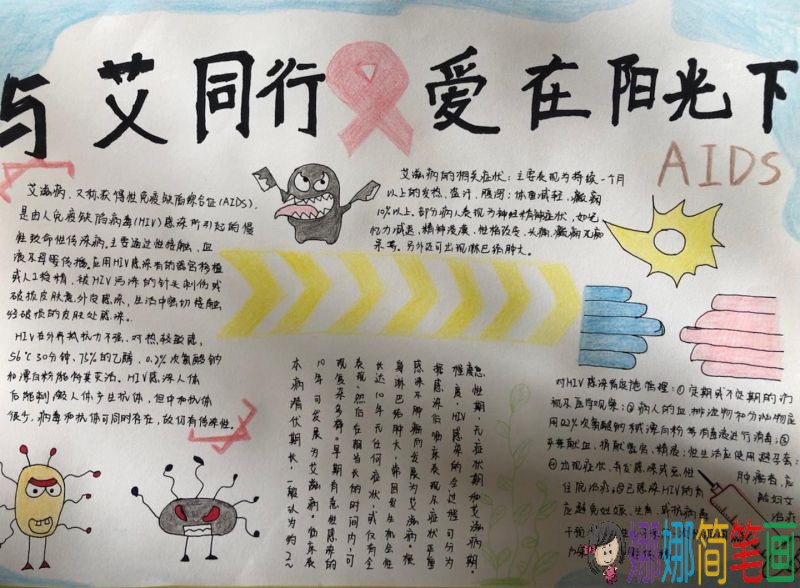 与艾同行 爱在阳光下
AIDS
艾滋病，又称获得性免疫缺陷综合征(AIDS)，
是由人免疫缺陷病毒(HIV)感染所引起的慢
性致命性传染病。主要通过性接触，血
液及母婴传播。应用HIV感染者的器官移植
或人工授精，被HIV污染的针头刺伤或
破损皮肤意外受感染，生活中密切接触
经破损的皮肤处感染。
HIV在外界抵抗力不强，对热较敏感，
56℃30分钟，75%的乙醇，0.2%次氯酸钠
和漂白粉能将其灭活。HIV感染人体
后能刺激人体产生抗体，但中和抗体
很少，病毒和抗体可同时存在，故仍有传染性。
艾滋病的相关症状：主要表现为持续一个月
以上的发热，盗汗，腹泻；体重减轻，
10%以上，部分病人表现为神经精神症状，如记
忆力减退，精神淡漠，性格改变，头痛，癫痫及痴
呆等。另外还可出现淋巴结肿大。
急性期，无症状期和艾滋病期
程度，HIV感染的全过程可分为
感染后临床表现及症状严重
感染不肿瘤而发展为艾滋病。根
身淋巴结肿大，常因发生机会性
长达10年无任何症状，或仅有全
然后在相当长的时间内，可
现复杂多样。早期有急性感染的
10年可发展为艾滋病。临床表
本病潜伏期长，一般认为约2~
对HIV感染者
定期或不定期的访
视及医学观察；②病人的血，排泄物和分泌物应
用0.2%次氯酸钠或漂白粉等消毒液进行消毒；③
献血，捐献器官，精液；性生活应使用避孕套；
④出现症状，并发感染或恶性
肿瘤者，应
住院治疗。⑤已感染HIV的育
龄妇女
应避免妊娠，生育，
娜娜简笔画